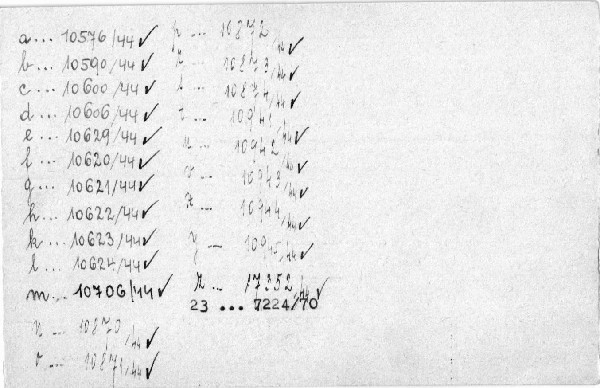 a ... 10576/44 ✓
b ... 10590/44 ✓
c ... 10600/44 ✓
d ... 10606/44 ✓
e ... 10629/44 ✓
f ... 10620/44 ✓
g ... 10621/44 ✓
h ... 10622/44 ✓
k ... 10623/44 ✓
l ... 10624/44 ✓
m ... 10706/44 ✓
n ... 10870/44 ✓
o ... 10871/44 ✓
p ... 10872/44 ✓
10873/44 ✓
10874/44 ✓
10941/44 ✓
u ... 10942/44 ✓
v ... 10943/44 ✓
x ... 10944/44 ✓
y ... 10945/44 ✓
z ... 17352/44 ✓
23 ... 7224/70